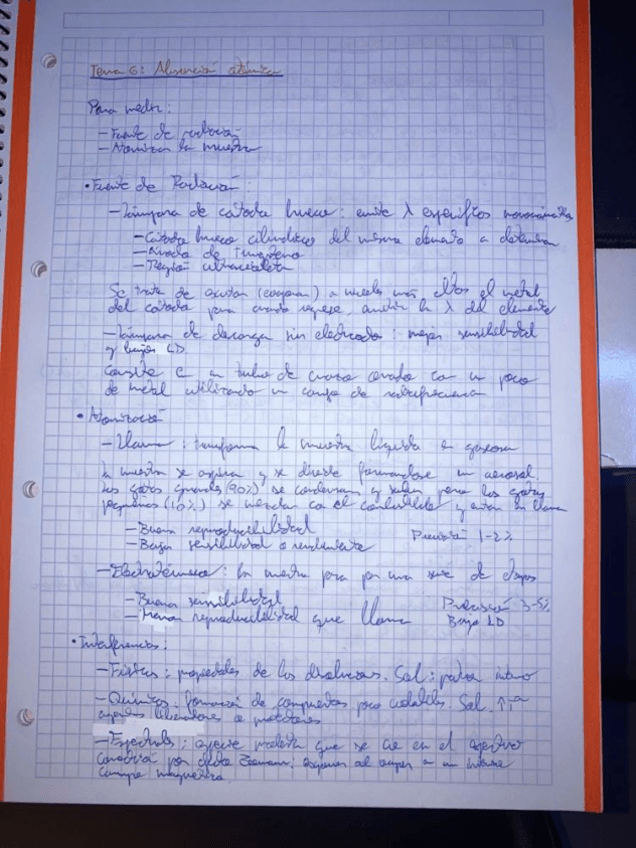 Tema 6: Absorción atómica
Para medir:
- Fuente de radiación
- Atomizar la muestra
• Fuente de Radiación:
- Lámpara de cátodo hueco: emite λ específicos
- Cátodo hueco cilíndrico del mismo elemento a determinar
- Ánodo de Tungsteno
- Región ultravioleta
Se trata de excitar a niveles más altos el metal
del cátodo para cuando regrese, emitir la λ del elemento
- Lámpara de descarga sin electrodos: mejor sensibilidad
y bajos LD
Consiste en un tubo de cuarzo con un poco
de metal utilizando un campo de radiofrecuencia
• Atomización
- Llama: transforma la muestra líquida a gaseosa
la muestra se aspira y se dirige formandose un aerosol.
Las gotas grandes (90%) se condensan y pero las gotas
pequeñas (10%) se mezclan con el combustible y entran en llama
- Buena reproducibilidad
Precisión 1-2%
- Baja sensibilidad o rendimiento
- Electrotérmica: la muestra pasa por una serie de etapas
- Buena sensibilidad
Precisión 3-5%
- Menor reproducibilidad que llama
Bajo LD
• Interferencias:
- Físicas: propiedades de las disoluciones. Sol: patrón interno
- Químicas: formación de compuestos poco volátiles. Sol. ↑Tª
agentes liberadores o protectores
- Espectrales: que se en el
por efecto Zeeman: al a un intenso
campo magnético.